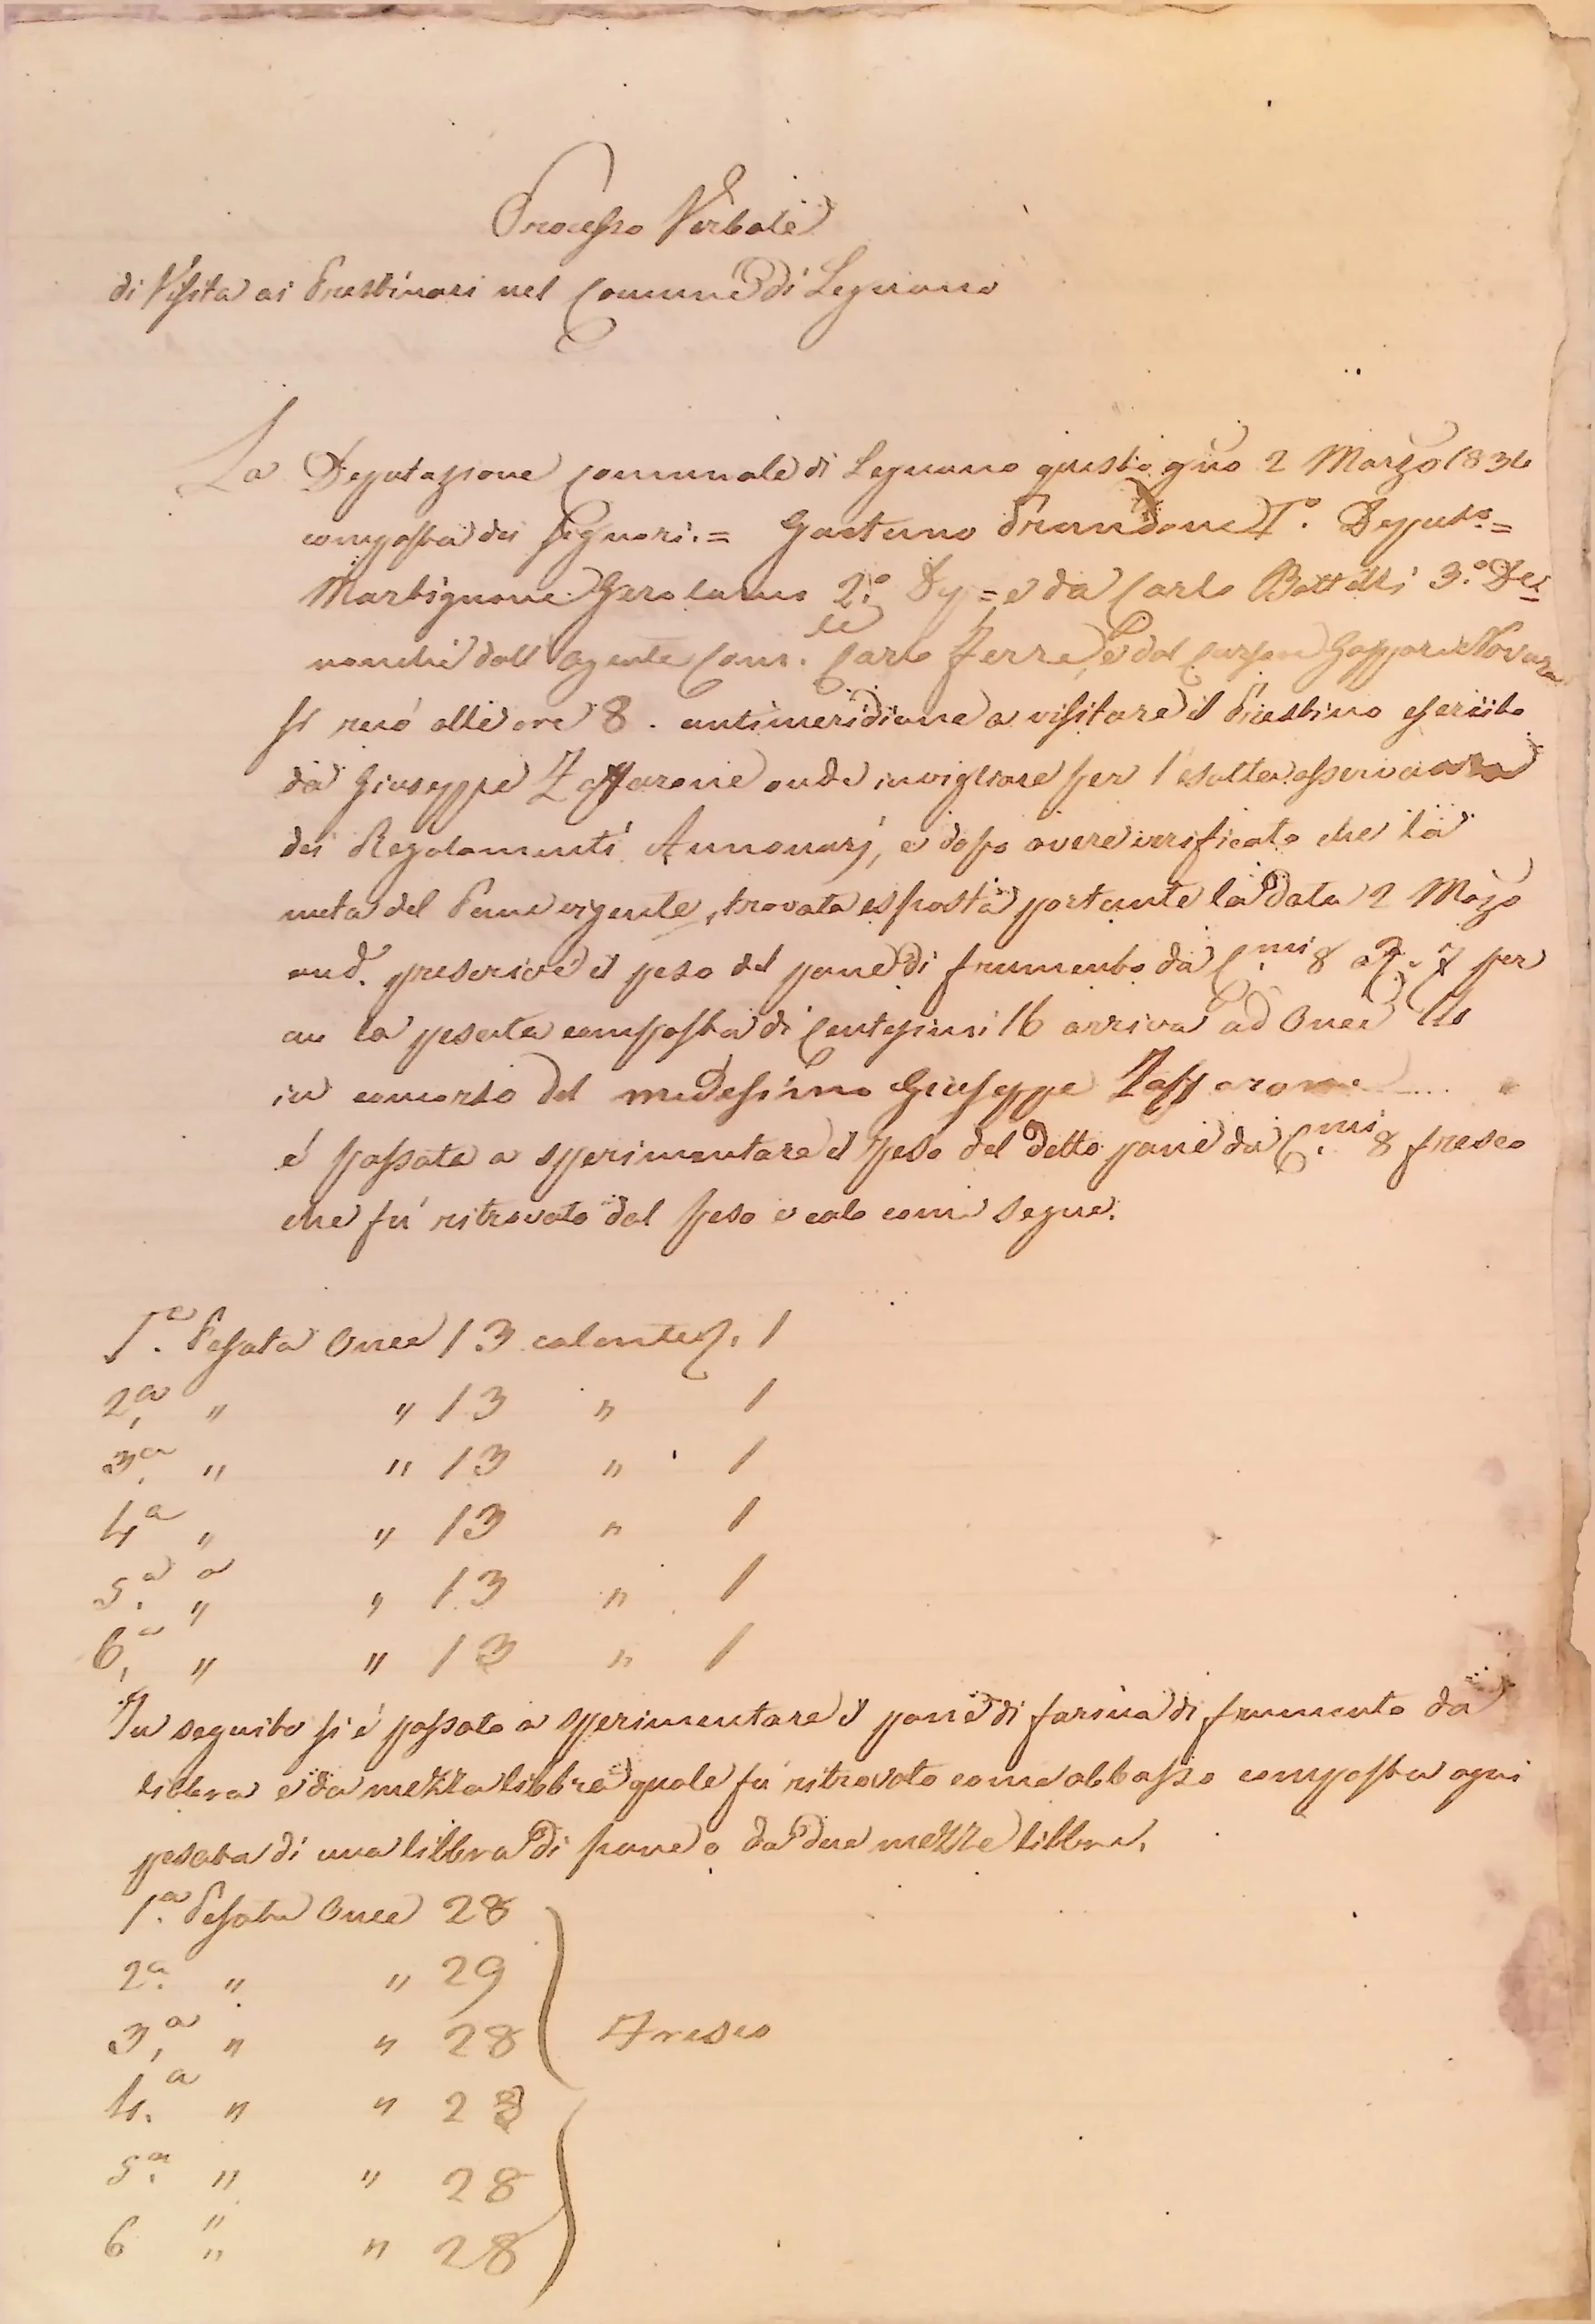 Processo Verbale
di Visita ai Prestinari nel Comune di Legnano
La Deputazione Comunale di Legnano questo gño 2 Marzo 1834
composta dei Signori. = Gaetano Prandone I°. Deputo. =
Martignone Gerolamo 2.° Dep = e da Carlo Bottelli 3.° De
nonchè dall agente Com.le Carlo Ferrè, e dal Cursore Gaspare Novara
si recó alle ore 8. antimeridiane a visitare il Prestino esercito
da Giuseppe Zaffarone onde invigliare per l'esatta osservanza
dei Regolamenti Annonarj, e dopo avere verificato che la
meta del Pane vigente, trovata esposta portante la data 2 Mazo
and. prescrive il peso del pane di frumento da C.mi 8 7 per
cu la pesata composta di Centesimi 16 arriva ad Once 14
in concorso del medessimo Giuseppe Zaffarone
é passata a sperimentare il peso del detto pane da C.mi 8 fresco
che fú ritrovato dal peso e calo come segue.
1.a Pesata Once 13 calante 1
2.a " " 13 " 1
3.a " " 13 " 1
4a " " 13 " 1
5.a " " 13 " 1
6.a " " 13 " 1
In seguito si é passato a sperimentare il pane di farina di frumento da
libbra e da mezza libbra quale fú ritrovato come abbasso composta ogni
pesata di una libbra di pane o da due mezze libbre.
1.a Pesata Once 28
2a. " " 29
3.a " " 28 Fresco
4.a " " 28
5.a " " 28
6 " " 28